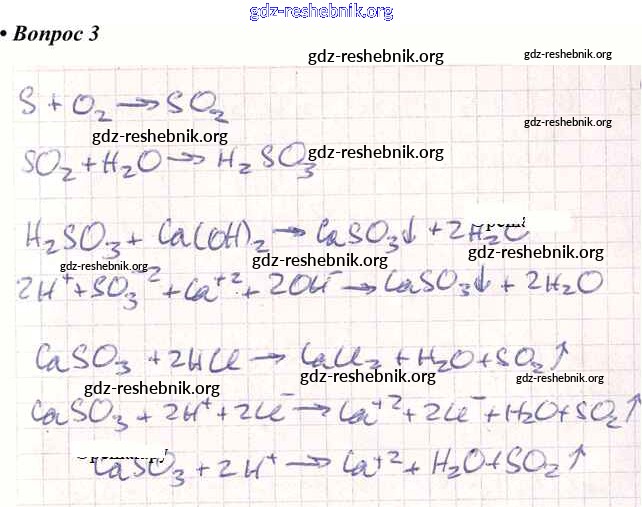 gdz-reshebnik.org
• Вопрос 3
gdz-reshebnik.org gdz-reshebnik.org
S + O₂ → SO₂
gdz-reshebnik.org gdz-reshebnik.org
SO₂ + H₂O → H₂SO₃
gdz-reshebnik.org
H₂SO₃ + Ca(OH)₂ → CaSO₃↓ + 2H₂O
gdz-reshebnik.org gdz-reshebnik.org gdz-reshebnik.org
2H⁺ + SO₃²⁻ + Ca⁺² + 2OH⁻ → CaSO₃↓ + 2H₂O
CaSO₃ + 2HCl → CaCl₂ + H₂O + SO₂↑
gdz-reshebnik.org gdz-reshebnik.org gdz-reshebnik.org
CaSO₃ + 2H⁺ + 2Cl⁻ → Ca⁺² + 2Cl⁻ + H₂O + SO₂↑
CaSO₃ + 2H⁺ → Ca⁺² + H₂O + SO₂↑